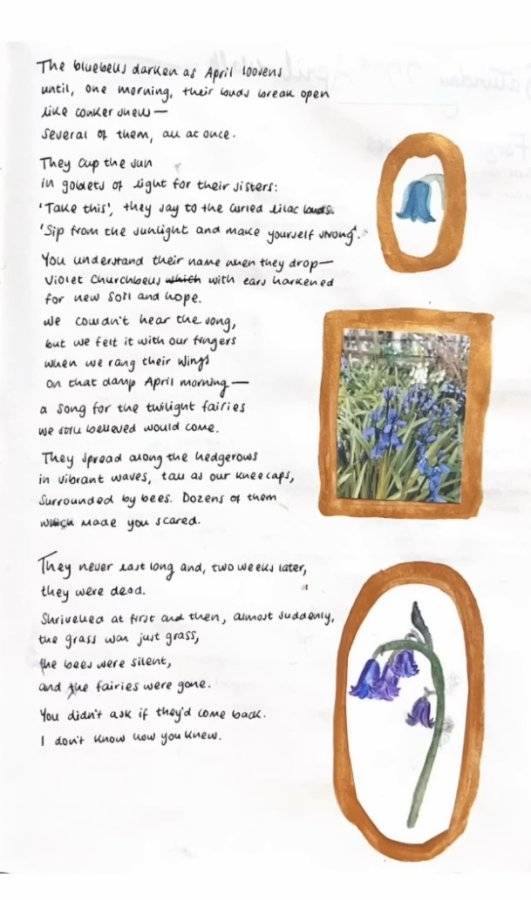 The bluebells darken as April loosens
until, one morning, their buds break open
like conker shell—
Several of them, all at once.
They cup the sun
in goblets of light for their sisters:
'Take this', they say to the curled lilac buds.
'Sip from the sunlight and make yourself strong'.
You understand their name when they drop—
Violet Churchbells which with ears harkened
for new soil and hope.
We couldn't hear the song,
but we felt it with our fingers
when we rang their wings
on that damp April morning—
a song for the twilight fairies
we still believed would come.
They spread along the hedgerows
in vibrant waves, tall as our kneecaps,
Surrounded by bees. Dozens of them
which made you scared.
They never last long and, two weeks later,
they were dead.
Shrivelled at first and then, almost suddenly,
the grass was just grass,
the bees were silent,
and the fairies were gone.
You didn't ask if they'd come back.
I don't know how you knew.